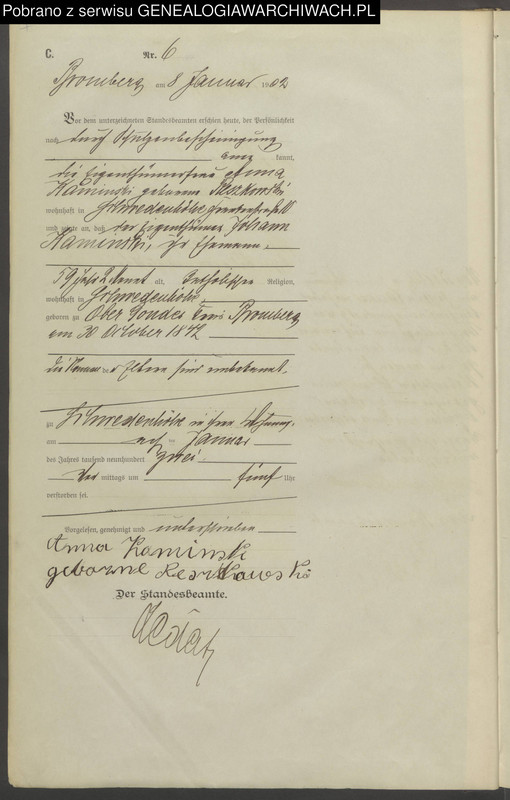 Pobrano z serwisu GENEALOGIAWARCHIWACH.PL
C. Nr. 6
Bromberg am 8 Januar 1902
Vor dem unterzeichneten Standesbeamten erschien heute, der Persönlichkeit
nach durch
kannt,
die Eigenthümerfrau Anna
Kaminski geborene
wohnhaft in Schwedenhöhe
und zeigte an, daß der Eigenthümer Johann
Kaminski, ihr Ehemann,
59 Jahr alt, katholischer Religion,
wohnhaft in Schwedenhöhe
geboren zu Ober Gondes Kreis Bromberg
am 30 October 1842
die Namen der Eltern sind unbekannt.
zu Schwedenhöhe in ihrer Wohnung
am Januar
des Jahres tausend neunhundert zwei
Vormittags um fünf Uhr
verstorben sei.
Vorgelesen, genehmigt und unterschrieben
Anna Kaminski
geborne
Der Standesbeamte.